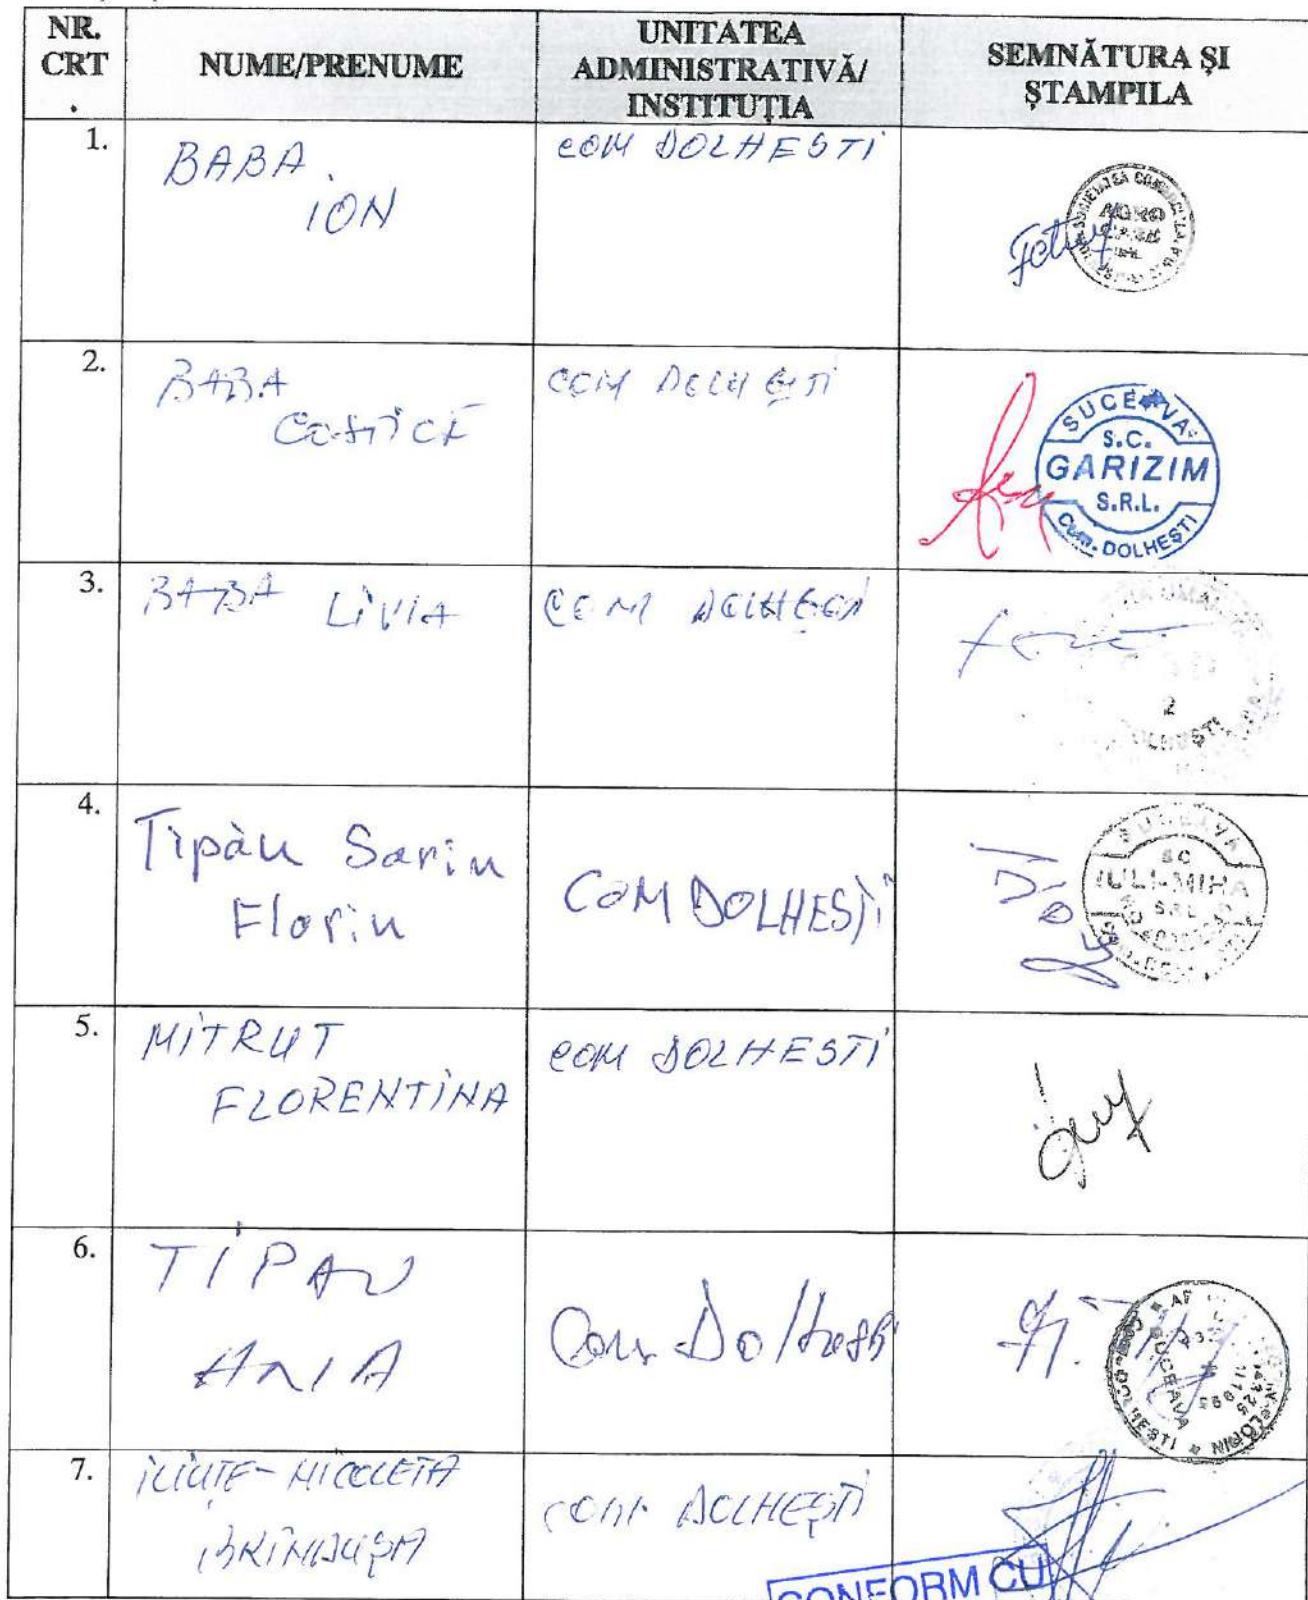 NR.
CRT
.
NUME/PRENUME
UNITATEA
ADMINISTRATIVĂ/
INSTITUȚIA
SEMNĂTURA ȘI
ȘTAMPILA
1.
BABA
ION
COM DOLHESTI
2.
BABA
COSTICĂ
COM DOLHEȘTI
SUCEAVA
S.C.
GARIZIM
S.R.L.
Com. DOLHEȘTI
3.
BABA LIVIA
COM DOLHEȘTI
2
4.
Tipău Sorin
Florin
COM DOLHEȘTI
SUCEAVA
SC
IULI-MIHA
SRL
5.
MITRUT
FLORENTINA
COM DOLHESTI
6.
TIPAU
ANA
Com Dolhesti
SUCEAVA
7.
ILIUȚE-NICOLETA
BRÎNDUȘA
COM DOLHEȘTI
CONFORM CU